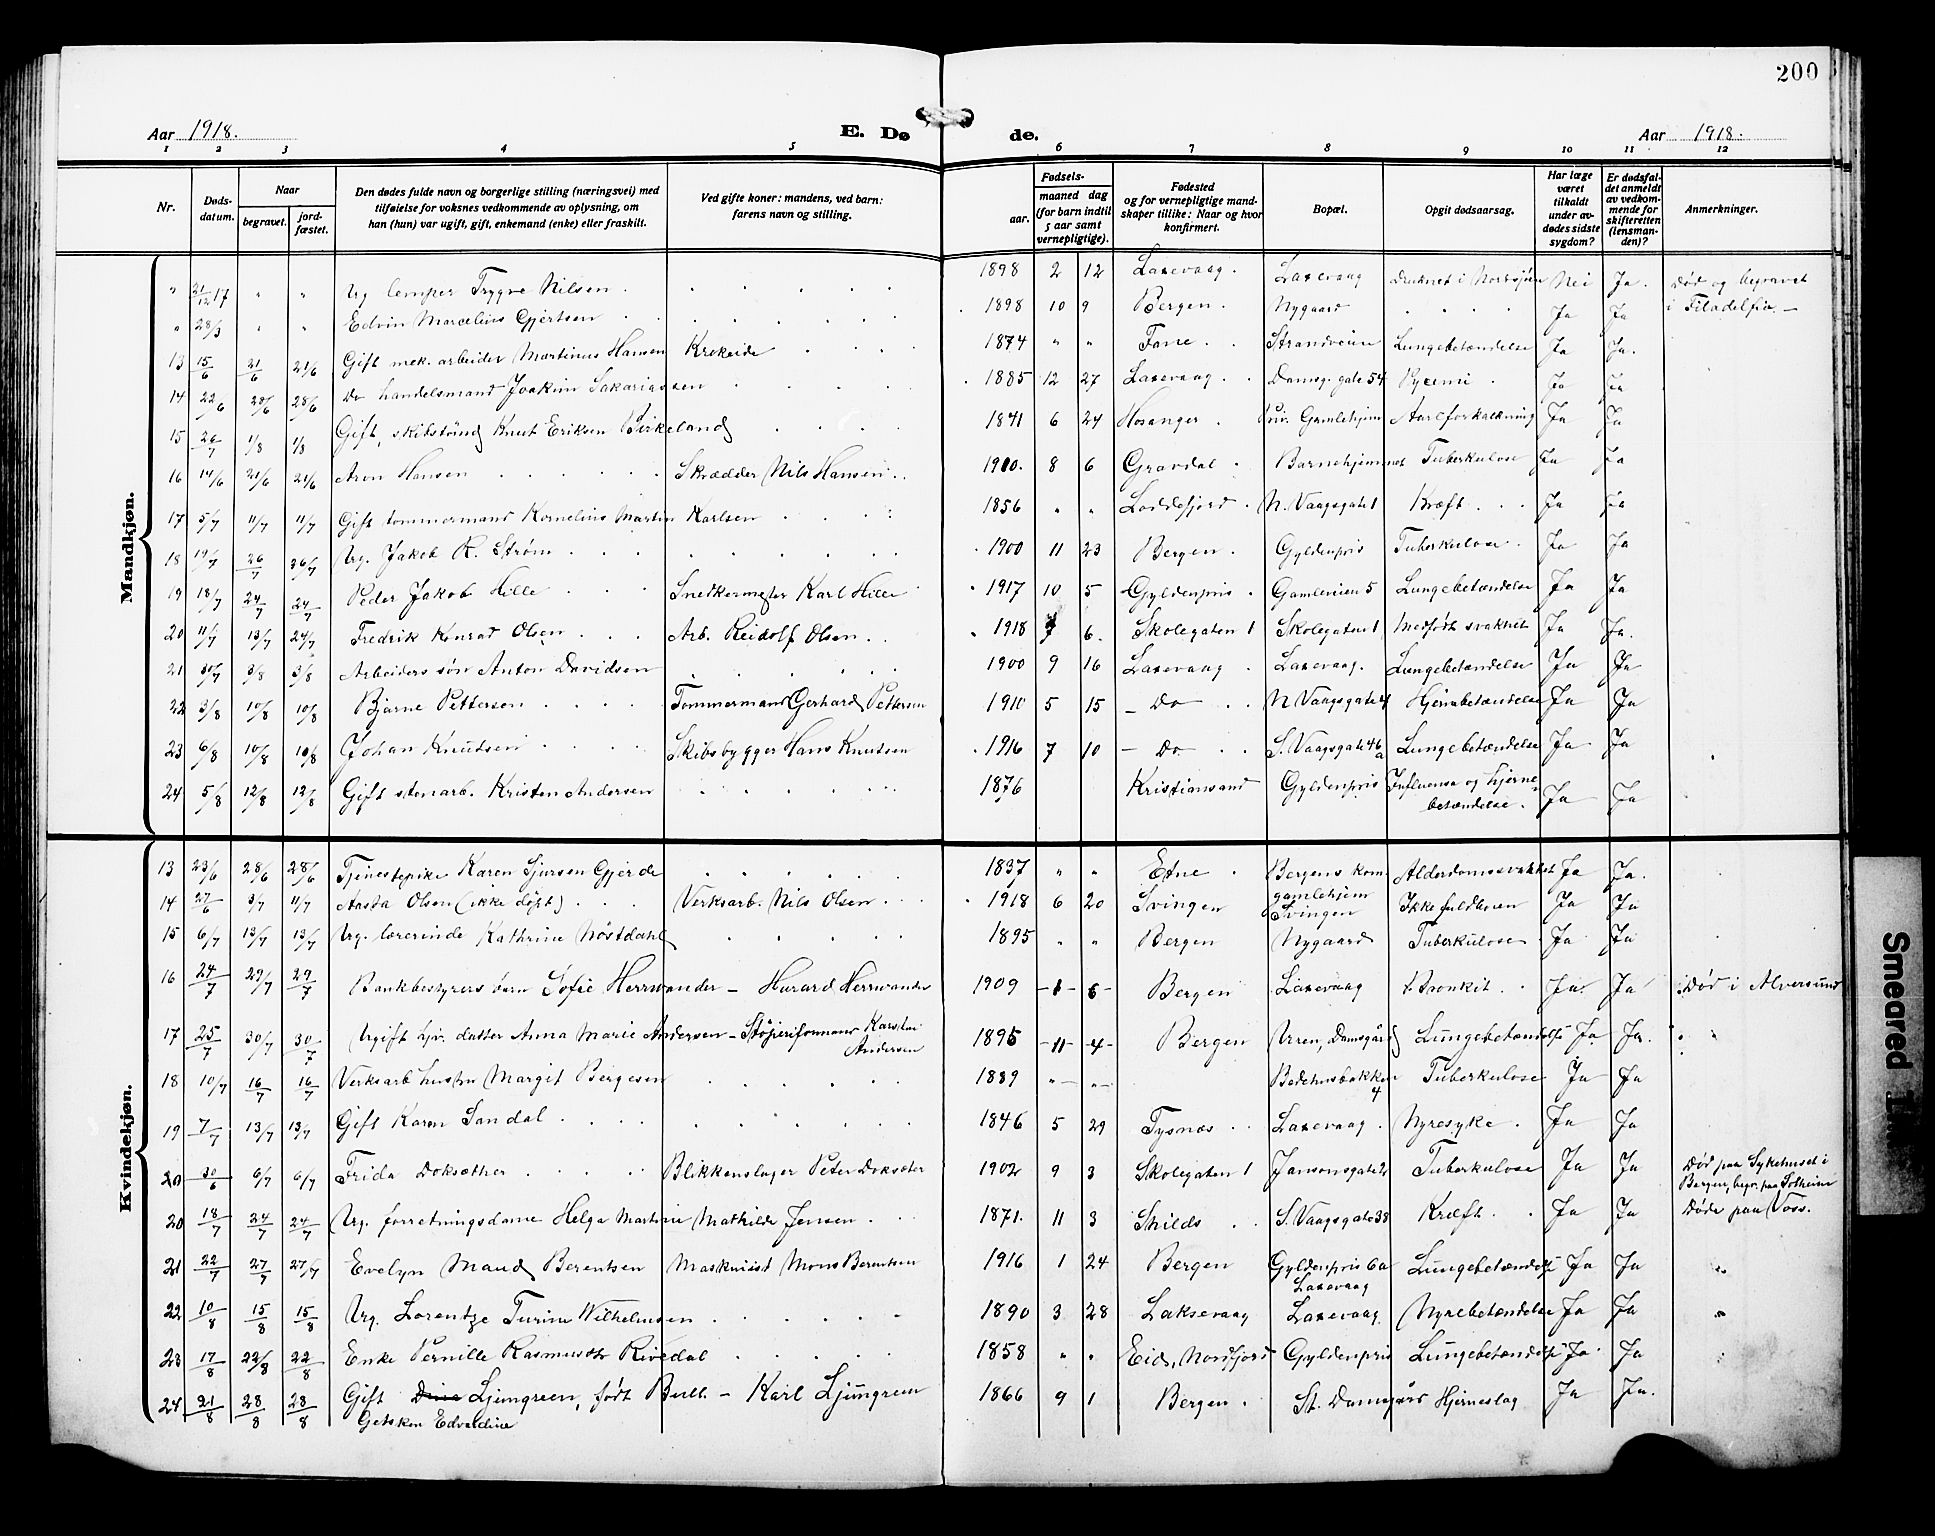 200
Aar 1918.
E. Dø
de.
Aar 1918.
1 2 3 4 5 6 7 8 9 10 11 12
Nr.
Døds-
datum.
Naar
begravet.
jord-
fæstet.
Den dødes fulde navn og borgerlige stilling (næringsvei) med
tilføielse for voksnes vedkommende av oplysning, om
han (hun) var ugift, gift, enkemand (enke) eller fraskilt.
Ved gifte koner: mandens, ved barn:
farens navn og stilling.
Fødsels-
aar.
maaned dag
(for barn indtil
5 aar samt
vernepligtige).
Fødested
og for vernepligtige mand-
skaper tillike: Naar og hvor
konfirmert.
Bopæl.
Opgit dødsaarsag.
Har læge
været
tilkaldt
under av-
dødes sidste
sygdom?
Er dødsfal-
det anmeldt
av vedkom-
mende for
skifteretten
(lensman-
den)?
Anmerkninger.
Mandkjøn.
" 21/12 17 " " Ug lemper Trygve Nilsen 1898 2 12 Laxevaag. Laxevaag Druknet i Nordsjøen Nei Ja. Død og begravet
" 28/3 " " Edvin Marcelius Gjertsen 1898 10 9 Bergen. Nygaard Ja Ja i Filadelfia. —
13 15/6 21/6 21/6 Gift mek. arbeider Martinus Hansen Krokeide 1874 " " Fane Strandveien Lungebetændelse Ja Ja.
14 22/6 28/6 28/6 Do handelsmand Joakim Sakariassen 1885 12 27 Laxevaag. Damsg. gate 54 Pyæmi Ja Ja
15 26/7 1/8 1/8 Gift, skibstømd Knut Eriksen Birkeland 1841 6 24 Hosanger Priv. Gamlehjem Aareforkalkning Ja Ja
16 14/6 21/6 21/6 Aron Hansen Skrædder Nils Hansen 1910. 8 6 Gravdal Barnehjemmet Tuberkulose Ja Ja
17 5/7 11/7 11/7 Gift tømmermand Kornelius Martin Karlsen 1856 " " Loddefjord N. Vaagsgate 1 Kræft Ja Ja
18 19/7 26/7 26/7 Ug. Jakob R. Strøm 1900 11 23 Bergen. Gyldenpris Tuberkulose Ja Ja
19 18/7 24/7 24/7 Peder Jakob Hille Snedkermester Karl Hille 1917 10 5 Gyldenpris Gamleveien 5 Lungebetændelse Ja Ja
20 11/7 13/7 24/7 Fredrik Konrad Olsen Arb. Reidolf Olsen 1918 7 6. Skolegaten 1 Skolegaten 1 Medfødt svakhet Ja Ja.
21 30/7 3/8 3/8 Arbeiders søn Anton Davidsen 1900 9 16 Laxevaag Laxevaag. Lungebetændelse Ja Ja
22 3/8 10/8 10/8 Bjarne Pettersen Tømmermand Gerhard Pettersen 1910 5 15 — Do N Vaagsgate 4 Hjernebetændelse Ja Ja
23 6/8 10/8 10/8 Johan Knudsen Skibsbygger Hans Knudsen 1916 7 10 — Do S. Vaagsgate 46a Lungebetændelse Ja Ja
24 5/8 12/8 12/8 Gift stenarb. Kristen Andersen 1876 Kristiansand Gyldenpris Influensa og hjerne-
betændelse. Ja Ja
Kvindekjøn.
13 23/6 28/6 28/6 Tjenestepike Karen Sjursen Gjerde 1837 " " Etne Bergens kom Alderdomssvakhet Ja Ja.
gamlehjem
14 27/6 3/7 11/7 Aasta Olson (ikke døpt) Verksarb. Nils Olsen 1918 6 20 Svingen Svingen Ikke fuldbaaren Ja Ja
15 6/7 13/7 13/7 Ug. lærerinde Kathrine Nøstdahl 1895 " " Bergen Nygaard Tuberkulose Ja Ja
16 24/7 29/7 29/7 Bankbestyrers barn Sofie Herrwander — Herrwander 1909 — 1 — 6 — Bergen Laxevaag Bronkit Ja. Ja Død i Alversund
17 25/7 30/7 30/7 Ugift hjv. datter Anna Marie Andersen — Støperiformand Karsten
Andersen 1895 — 11 — 4 — Bergen Urren, Damsgård Lungebetændelse Ja Ja.
18 10/7 16/7 16/7 Verksarb hustru Margit Bergesen 1889 " — " — Bedehusbakken
4 Tuberkulose Ja Ja
19 7/7 13/7 13/7 Gift Karen Sandal 1846 5 29 Tysnæs Laxevaag Nyresyke Ja Ja
20 30/6 6/7 6/7 Frida Doksæther Blikkenslager Peter Doksæter 1902 9 3 Skolegaten 1 Jansonsgate 2 Tuberkulose Ja Ja Død paa Sykehuset i
Bergen, begr. paa Solheim
20 18/7 24/7 24/7 Ug. forretningsdame Helga Martine Mathilde Jensen 1871. 11 3 Skilds S. Vaagsgate 38 Kræft Ja Ja Døde paa Voss.
21 22/7 27/7 27/7 Evelyn Maud Berentsen Maskinist Mons Berentsen 1916 1 24 Bergen Gyldenpris 6a
Laxevaag Lungebetændelse Ja Ja
22 10/8 15/8 15/8 Ug. Lorentze Turine Wilhelmsen 1890 3 28 Laksevaag Laxevaag Nyrebetændelse Ja Ja
23 17/8 22/8 22/8 Enke Pernille Rasmusdtr Rivedal 1858 " " Eid, Nordfjord Gyldenpris Lungebetændelse Ja Ja
24 21/8 28/8 28/8 Gift Ljungreen, født Bull — Karl Ljungreen 1866 9 1 Bergen St. Damsgård Hjerneslag Ja Ja.
Getsken Edvardine
Smeared